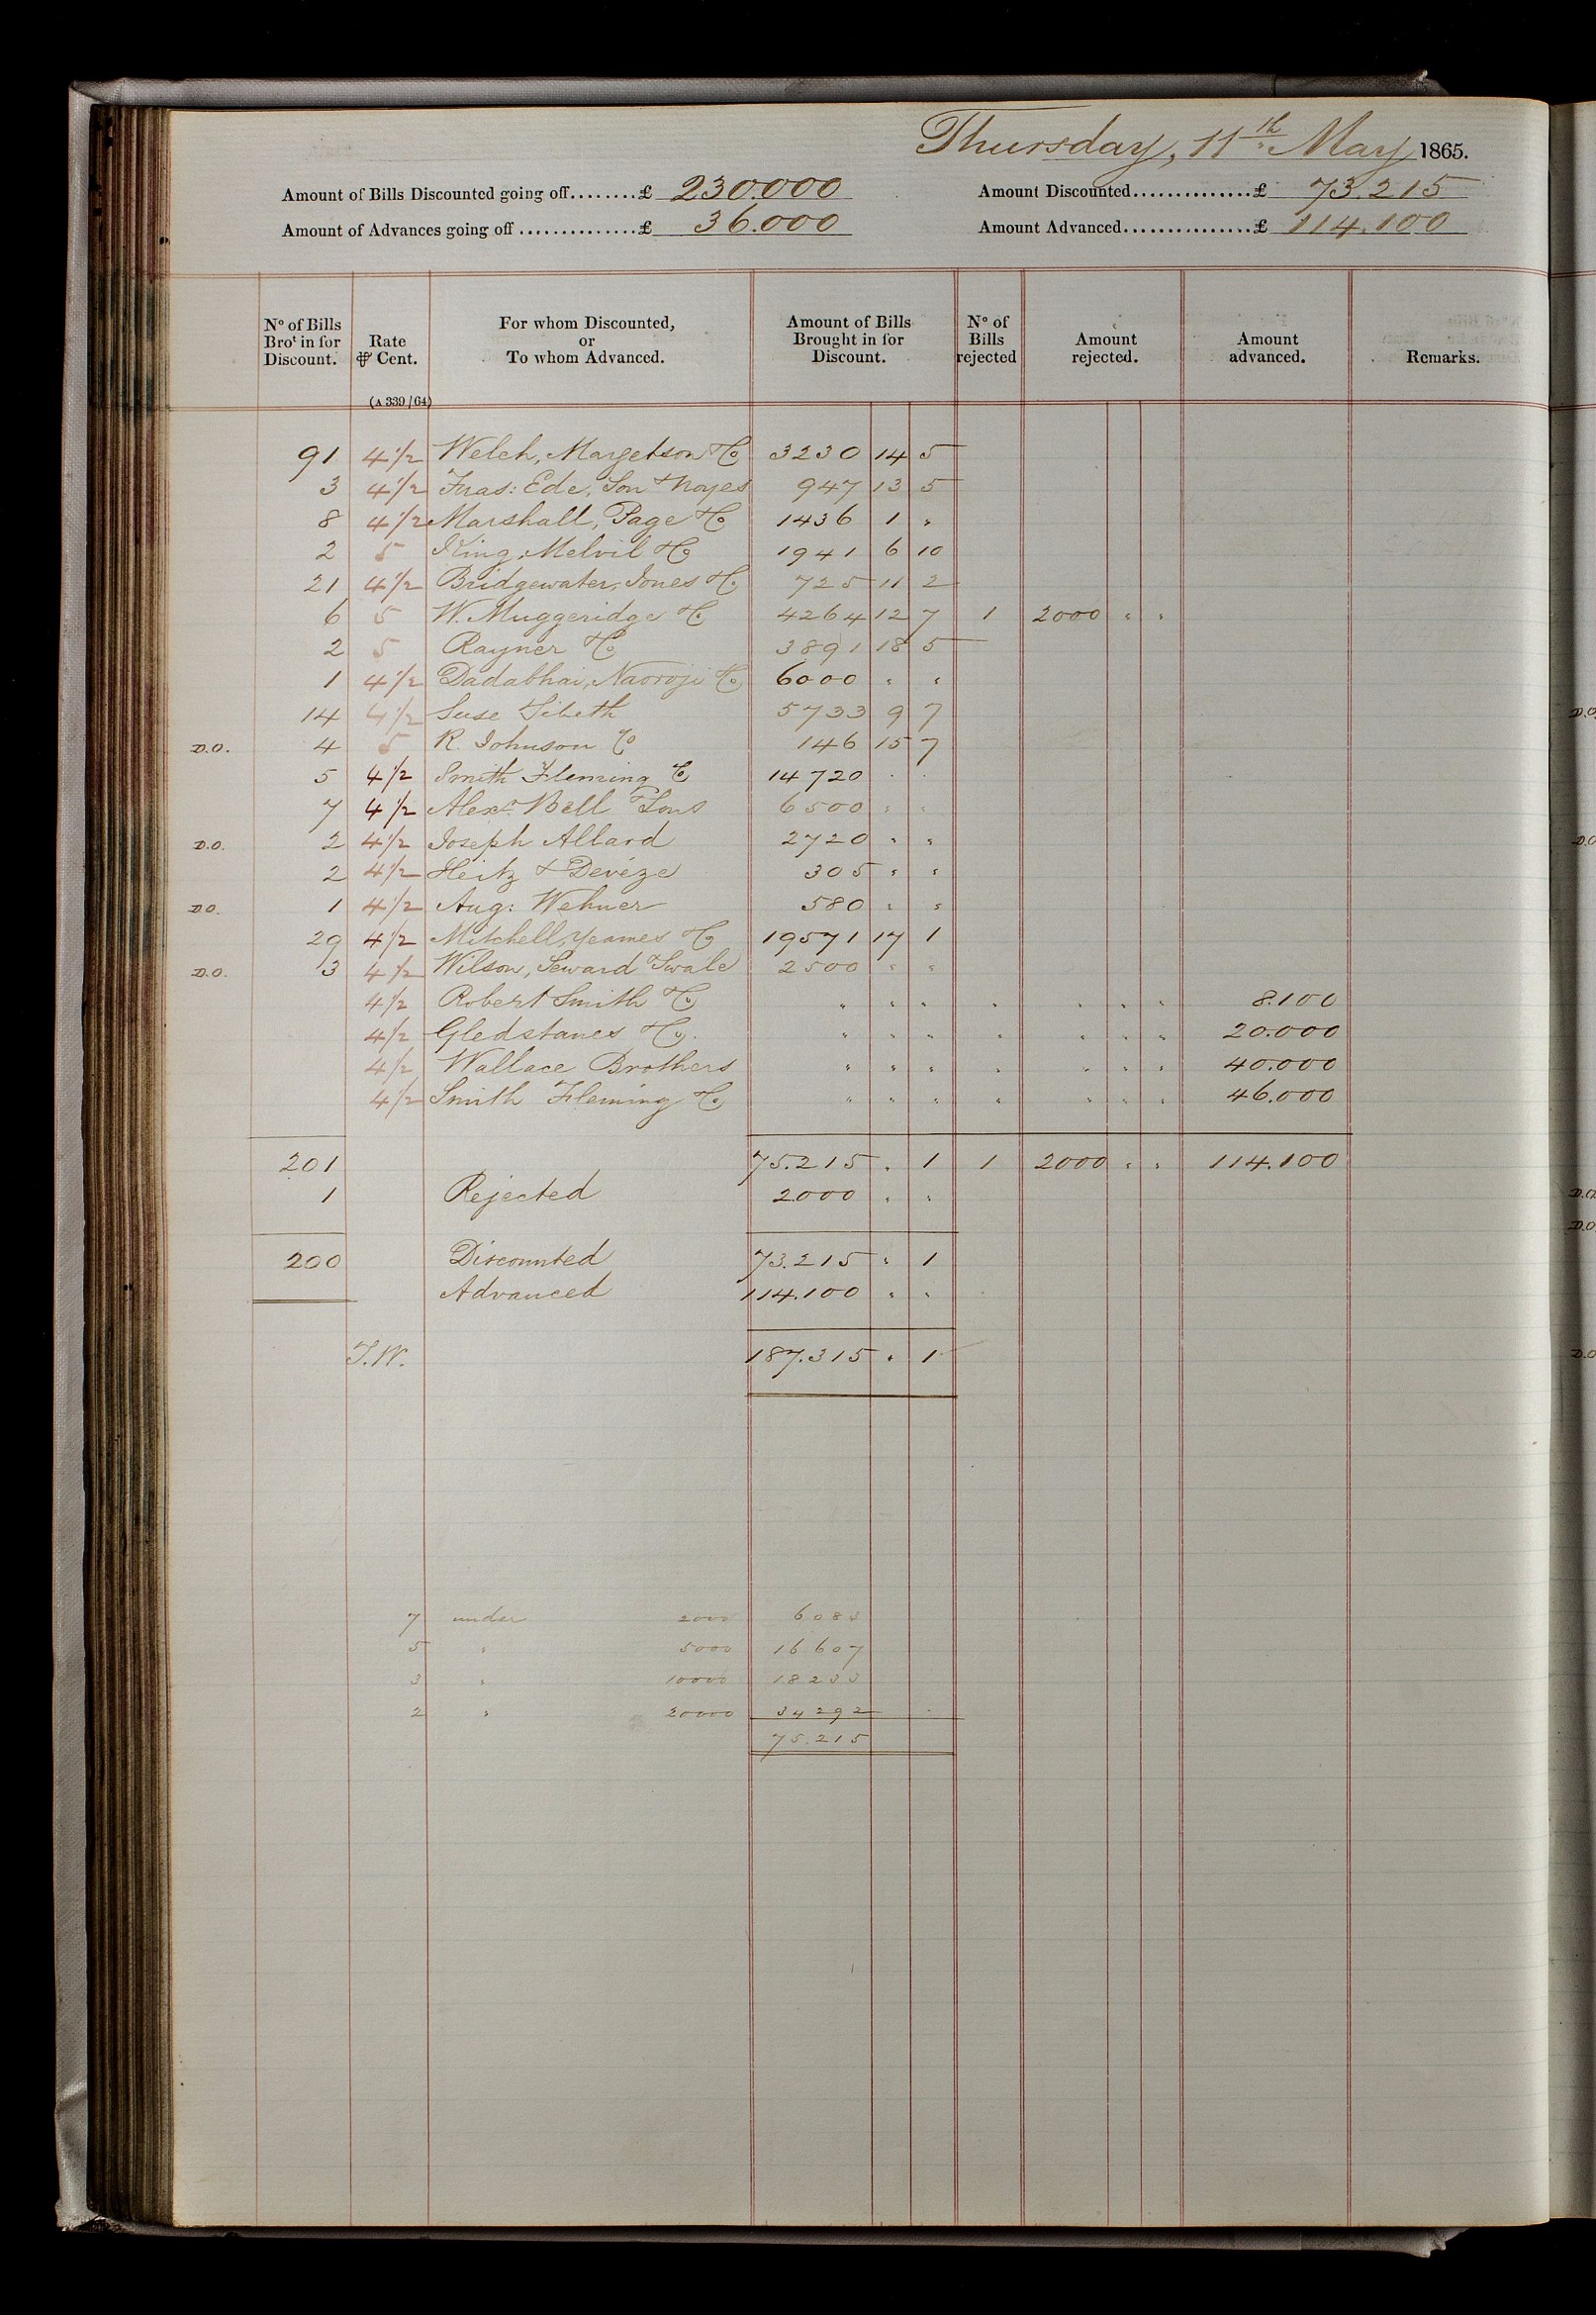 Thursday, 11th May 1865.
Amount of Bills Discounted going off........£ 230.000 Amount Discounted..............£ 73.215
Amount of Advances going off..............£ 36.000 Amount Advanced...............£ 114.100
No of Bills Brot in for Discount. Rate ⅌ Cent. For whom Discounted, or To whom Advanced. Amount of Bills Brought in for Discount. No of Bills rejected Amount rejected. Amount advanced. Remarks.
(A 339/64)
91 4 1/2 Welch, Margetson & Co 3230 14 5
3 4 1/2 Fras: Ede, Son & Noyes 947 13 5
8 4 1/2 Marshall, Page & Co 1436 1 "
2 5 King, Melvil & Co 1941 6 10
21 4 1/2 Bridgewater, Jones & Co 725 11 2
6 5 W. Muggeridge & Co 4264 12 7 1 2000 " "
2 5 Rayner & Co 3891 18 5
1 4 1/2 Dadabhai, Naoroji & Co 6000 " "
14 4 1/2 Suse & Sibeth 5733 9 7
D.O. 4 5 R. Johnson & Co 146 15 7
5 4 1/2 Smith Fleming & Co 14720 " "
7 4 1/2 Alexr. Bell & Sons 6500 " "
D.O. 2 4 1/2 Joseph Allard 2720 " "
2 4 1/2 Heitz & Devéze 305 " "
D.O. 1 4 1/2 Aug: Wehner 580 " "
29 4 1/2 Mitchell, Yeames & Co 19571 17 1
D.O. 3 4 1/2 Wilson, Seward & Swale 2500 " "
4 1/2 Robert Smith & Co " " " " " " " 8.100
4 1/2 Gledstanes & Co. " " " " " " " 20.000
4 1/2 Wallace Brothers " " " " " " " 40.000
4 1/2 Smith Fleming & Co " " " " " " " 46.000
201 75.215 " 1 1 2000 " " 114.100
1 Rejected 2000 " "
200 Discounted 73.215 " 1
Advanced 114.100 " "
T.W. 187.315 " 1
7 under 2000 6083
5 " 5000 16607
3 " 10000 18233
2 " 20000 34292
75.215